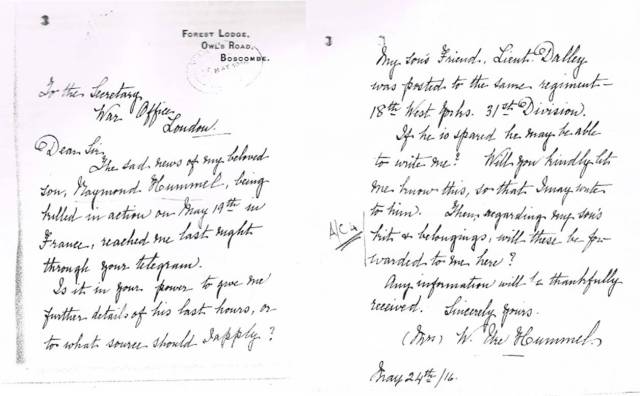 3
FOREST LODGE,
OWL'S ROAD,
BOSCOMBE.
MAY
To the Secretary
War Office,
London.
Dear Sir
The sad news of my beloved
son, Raymond Hummel, being
killed in action on May 19th in
France, reached me last night
through your telegram.
Is it in your power to give me
further details of his last hours, or
to what source should I apply?
3
My son's Friend, Lieut. Dalley
was posted to the same regiment –
18th West Yorks. 31st Division.
If he is spared he may be able
to write me? Will you kindly let
me know this, so that I may write
to him. Then, regarding my son's
kit & belongings, will these be for
warded to me here?
A/C 4
Any information will be thankfully
received. Sincerely Yours.
(Mrs) W. Hummel.
May 24th/16.